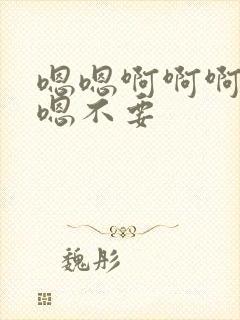 嗯嗯啊啊啊
嗯不要
魏彤